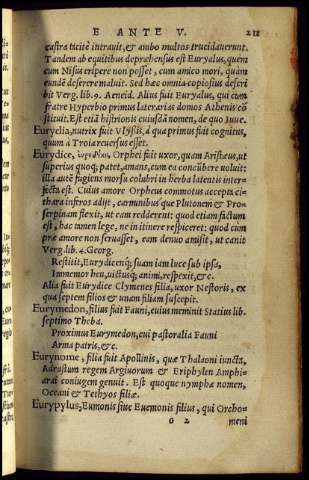 E ANTE V. 212
castra tacitè intrauit, & ambo multos trucidauerunt.
Tandem ab equitibus deprahensus est Euryalus, quem
cum Nisus eripere non posset, cum amico mori, quàm
eundē deserere maluit. Sed hæc omnia copiosius descri
bit Verg. lib. 9. Aeneid. Alius fuit Euryalus, qui cum
fratre Hyperbio primus laterarias domos Athenis cō
stituit. Est etiā histrionis cuiusdā nomen, de quo Iuue.
Euryclia, nutrix fuit Vlyssis, à qua primus fuit cognitus,
quum à Troia reuersus esset.
Eurydice, Orphei fuit uxor, quam Aristæus, ut
superius quoq; patet, amans, cum ea concūbere uoluit:
illa autē fugiens morsu colubri in herba latentis inter-
fecta est. Cuius amore Orpheus commotus accepta ci-
thara inferos adijt, carminibus que Plutonem & Pro-
serpinam flexit, ut eam redderent: quod etiam factum
est, hac tamen lege, ne in itinere respiceret: quod cum
præ amore non seruasset, eam denuo amisit, ut canit
Verg. lib. 4. Georg.
Restitit, Eurydicenq; suam iam luce sub ipsa,
Immemor heu, uictusq; animi, respexit, &c.
Alia fuit Eurydice Clymenes filia, uxor Nestoris, ex
qua septem filios & unam filiam suscepit.
Eurymedon, filius fuit Fauni, cuius meminit Statius lib.
septimo Theba.
Proximus Eurymedon, cui pastoralia Fauni
Arma patris, &c.
Eurynome, filia fuit Apollinis, quæ Thalaoni iuncta,
Adrastum regem Argiuorum & Eriphylen Amphi-
arai coniugem genuit. Est quoque nympha nomen,
Oceani & Tethyos filiæ.
Eurypylus, Eumonis siue Euemonis filius, qui Orcho-
G 2 meni